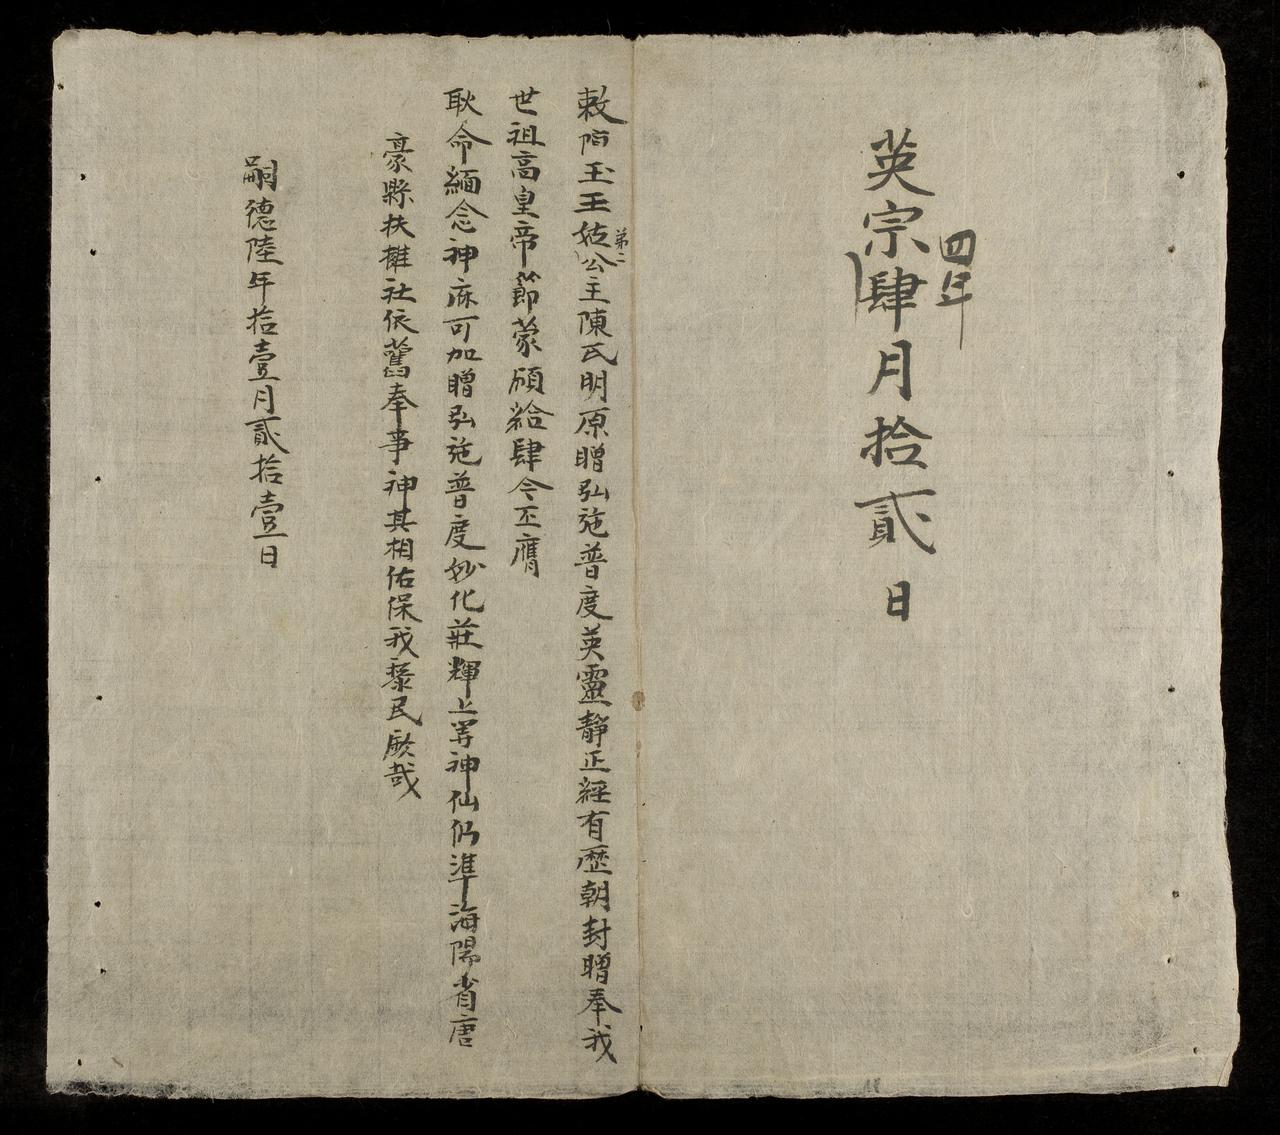 英宗四年肆月拾貳日
敕陌玉玉姑第二公主陳氏明原贈弘施普度英靈靜正經有歷朝封贈奉我
世祖高皇帝節蒙頒給肆今丕膺
耿命緬念神庥可加贈弘施普度妙化莊輝上等神仙仍準海陽省唐
豪縣扶擁社依舊奉事神其相佑保我黎民厥哉
嗣德陸年拾壹月貳拾壹日